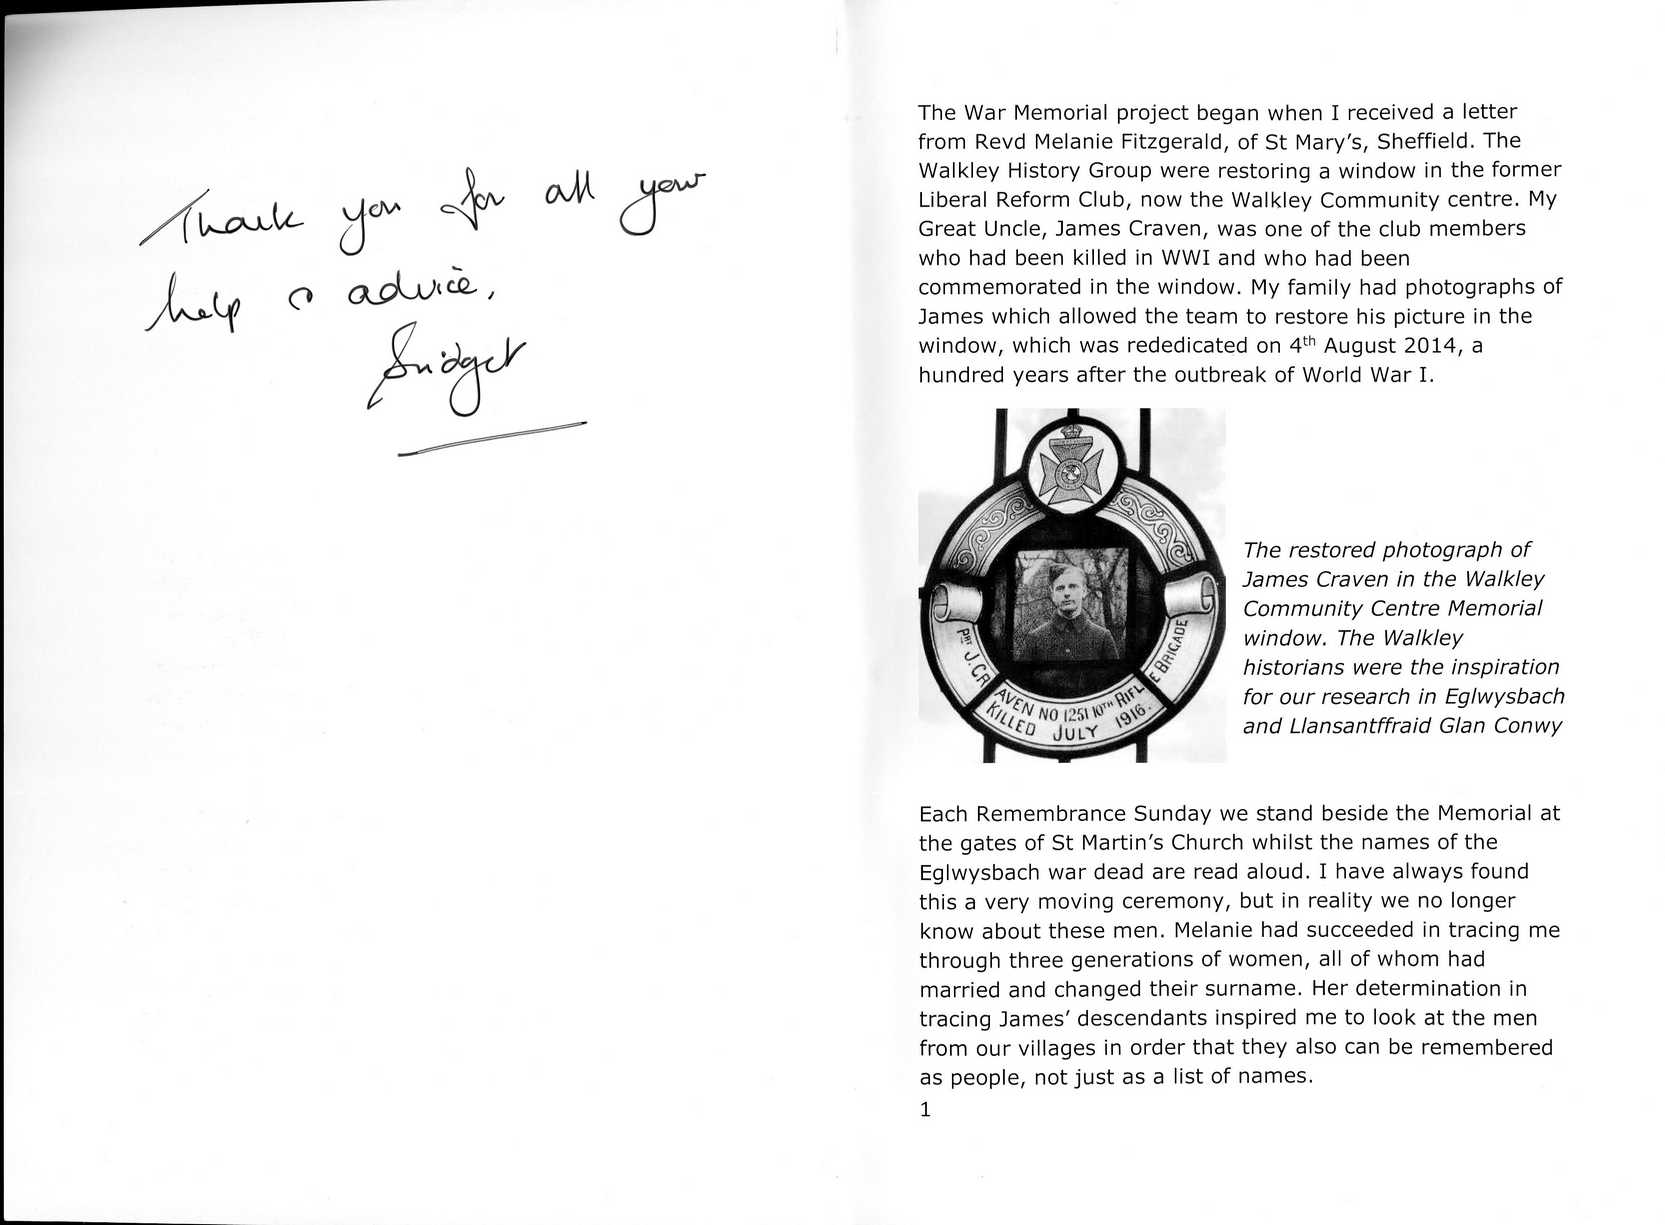 Thank you for all your
help & advice,
Bridget
The War Memorial project began when I received a letter
from Revd Melanie Fitzgerald, of St Mary’s, Sheffield. The
Walkley History Group were restoring a window in the former
Liberal Reform Club, now the Walkley Community centre. My
Great Uncle, James Craven, was one of the club members
who had been killed in WWI and who had been
commemorated in the window. My family had photographs of
James which allowed the team to restore his picture in the
window, which was rededicated on 4th August 2014, a
hundred years after the outbreak of World War I.
PRT J. CRAVEN NO 1251 10TH RIFLE BRIGADE
KILLED JULY 1916.
The restored photograph of
James Craven in the Walkley
Community Centre Memorial
window. The Walkley
historians were the inspiration
for our research in Eglwysbach
and Llansantffraid Glan Conwy
Each Remembrance Sunday we stand beside the Memorial at
the gates of St Martin’s Church whilst the names of the
Eglwysbach war dead are read aloud. I have always found
this a very moving ceremony, but in reality we no longer
know about these men. Melanie had succeeded in tracing me
through three generations of women, all of whom had
married and changed their surname. Her determination in
tracing James’ descendants inspired me to look at the men
from our villages in order that they also can be remembered
as people, not just as a list of names.
1